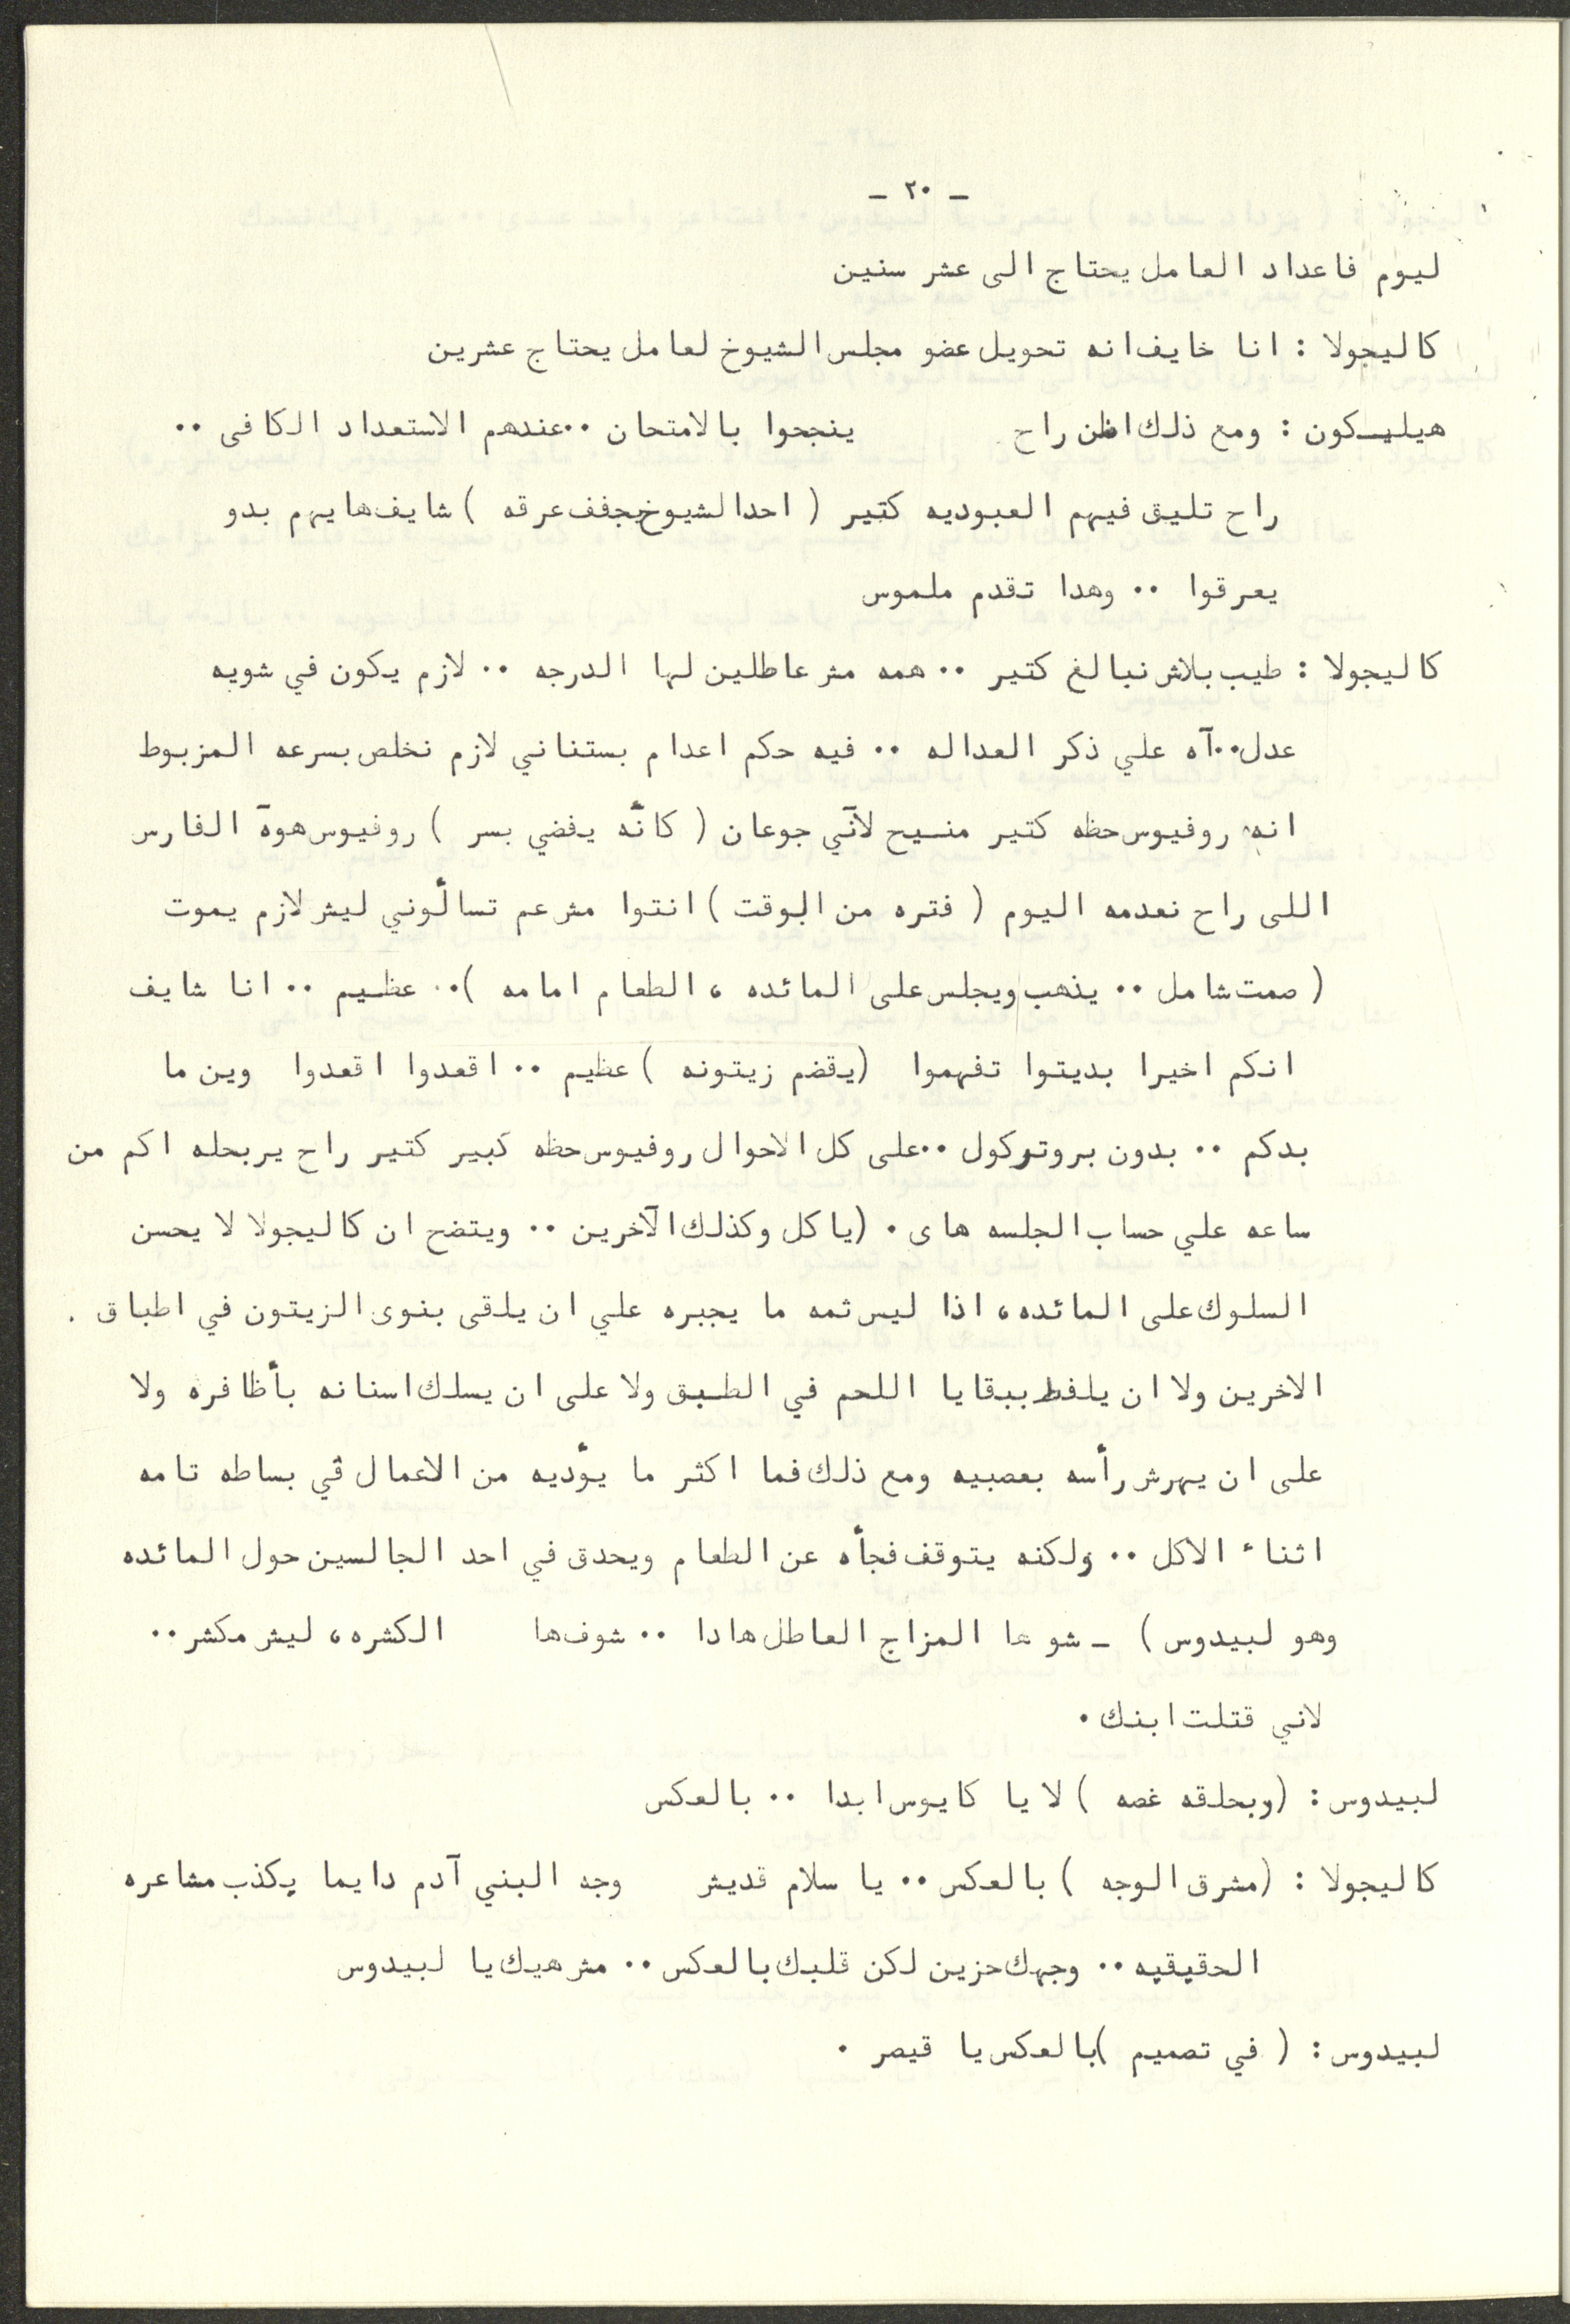 - ٢٠ -
ليوم فاعداد العامل يحتاج الى عشر سنين
كاليجولا : انا خايف انه تحويل عضو مجلس الشيوخ لعامل يحتاج عشرين
هيليكون : ومع ذلك اظن راح ينجحوا بالامتحان ٠٠ عندهم الاستعداد الكافى ٠٠
راح تليق فيهم العبوديه كتير ( احد الشيوخ يجفف عرقه ) شايف هايهم بدو
يعرقوا ٠٠ وهدا تقدم ملموس
كاليجولا : طيب بلاش نبالغ كتير ٠٠ همه مش عاطلين لها الدرجه ٠٠ لازم يكون في شويه
عدل ٠٠ آه علي ذكر العداله ٠٠ فيه حكم اعدام بستناني لازم نخلص بسرعه المزبوط
انه روفيوس حظه كتير منسيح لأني جوعان ( كانّه يفضي بسر ) روفيوس هوة الفارس
اللى راح نعدمه اليوم ( فتره من الوقت ) انتوا مش عم تسالّوني ليش لازم يموت
( صمت شامل ٠٠ يذهب ويجلس على المائده ، الطعام امامه ) ٠٠ عظيم ٠٠ انا شايف
انكم اخيرا بديتوا تفهموا (يقضم زيتونه ) عظيم ٠٠ اقعدوا اقعدوا وين ما
بدكم ٠٠ بدون بروتركول ٠٠ على كل الاحوال روفيوس حظه كبير كتير راح يربحله اكم من
ساعه علي حساب الجلسه هاى ٠ (ياكل وكذلك الآخرين ٠٠ ويتضح ان كاليجولا لا يحسن
السلوك على المائده ، اذا ليس ثمه ما يجبره علي ان يلقى بنوى الزيتون في اطباق .
الاخرين ولا ان يلفظ ببقايا اللحم في الطبق ولا على ان يسلك اسنانه بأظافره ولا
على ان يهرش رأسه بعصبيه ومع ذلك فما اكثر ما يؤديه من الاعمال في بساطه تامه
اثناء الاكل ٠٠ ولكنه يتوقف فجأه عن الطعام ويحدق في احد الجالسين حول المائده
وهو لبيدوس ) - شو ها المزاج العاطل هادا ٠٠ شوف ها الكشره ، ليش مكشر ٠٠
لاني قتلت ابنك ٠
لبيدوس : (وبحلقه غصه ) لا يا كايوس ابدا ٠٠ بالعكس
كاليجولا : (مشرق الوجه ) بالعكس ٠٠ يا سلام قديش وجه البني آدم دايما يكذب مشاعره
الحقيقيه ٠٠ وجهك حزين لكن قلبك بالعكس ٠٠ مش هيك يا لبيدوس
لبيدوس : ( في تصميم ) بالعكس يا قيصر ٠